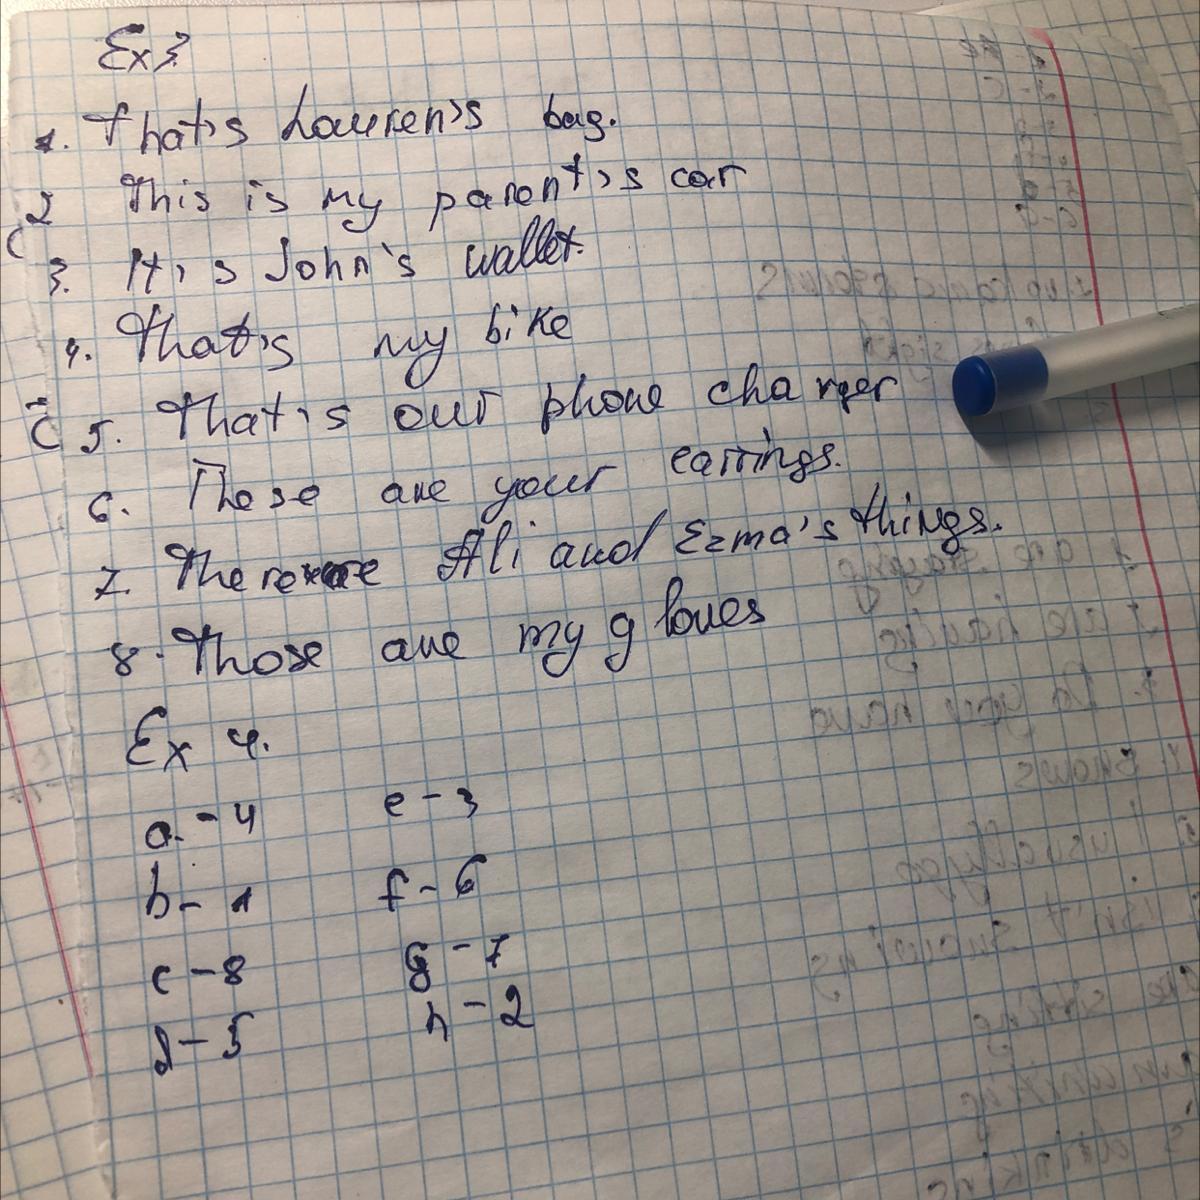 Ex 3.
1. That's Lauren's bag.
2 This is my parent's car
3. It's John's wallet.
4. That's my bike
5. That's our phone charger
6. These are your earrings.
7. There are Ali and Ezma's things.
8. Those are my gloves
Ex 4.
a. - 4 e - 3
b - 1 f - 6
c - 8 g - 7
d - 5 h - 2